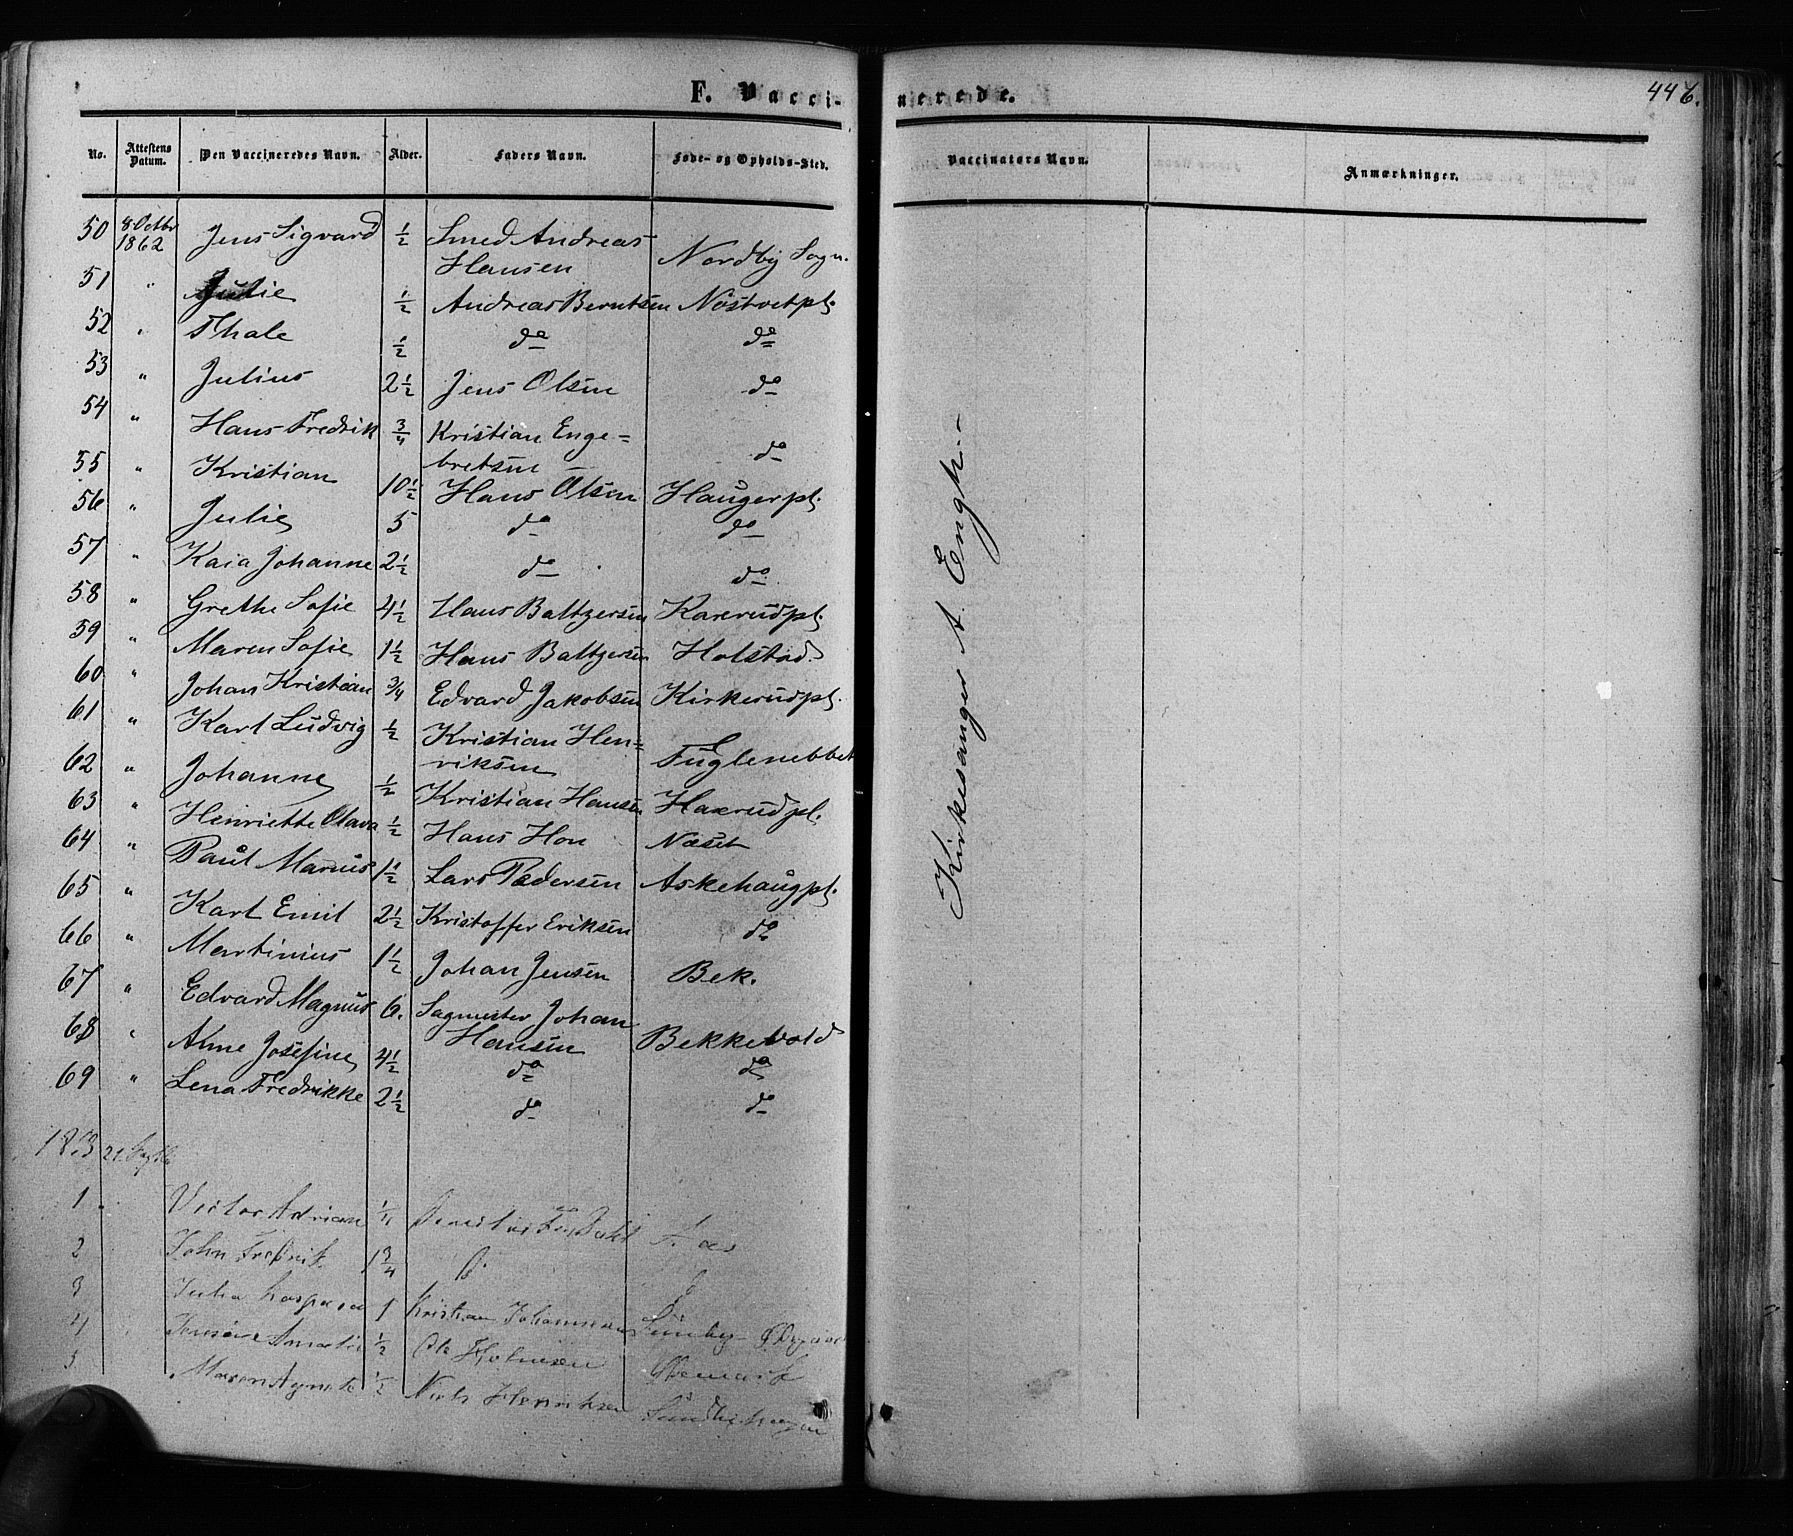 F. Vaccinerede.
446.
No. Attestens Datum. Den Vaccineredes Navn. Alder. Faders Navn. Føde- og Opholds-Sted. Vaccinators Navn. Anmærkninger.
50 8 Octbr 1862 Jens Sigvard 1/2 Smed Andreas Hansen Nordby Sogn.
51 " Julie 1/2 Andreas Berntsen Nøstvetpl.
52 " Thale 1/2 do do
53 " Julius 2 1/2 Jens Olsen do
54 " Hans Fredrik 3/4 Kristian Enge=
bretsen do
55 " Kristian 10 1/2 Hans Olsen Haugerpl.
56 " Julie 5 do do
57 " Kaia Johanne 2 1/2 do do
58 " Grethe Sofie 4 1/2 Hans Baltzersen Kaxrudpl.
59 " Maren Sofie 1 1/2 Hans Baltzersen Holstad.
60 " Johan Kristian 3/4 Edvard Jakobsen Kirkerudpl.
61 " Karl Ludvig 1/2 Kristian Hen=
riksen Fuglenebbet
62 " Johanne 1/2 Kristian Hansen Haxrudpl.
63 " Henriette Olava 1/2 Hans Hon Næset
64 " Paul Marius 1 1/2 Lars Pedersen Askehaugpl.
65 " Karl Emil 2 1/2 Kristoffer Eriksen do
66 " Martinius 1 1/2 Johan Jensen Bek.
67 " Edvard Magnus 6. Sagmester Johan
Hansen Bekkevold
68 " Anne Josefine 4 1/2 do do
69 " Lena Fredrikke 2 1/2 do do
21
1 Victor Adrian Aas
2 John Fredrik 1 3/4
3 Julia 1 Kristian Johannesen
4 1/2 Ole
5. Maren Agnete 1/2 Niels Henriksen
Kirkesanger A. Engh.